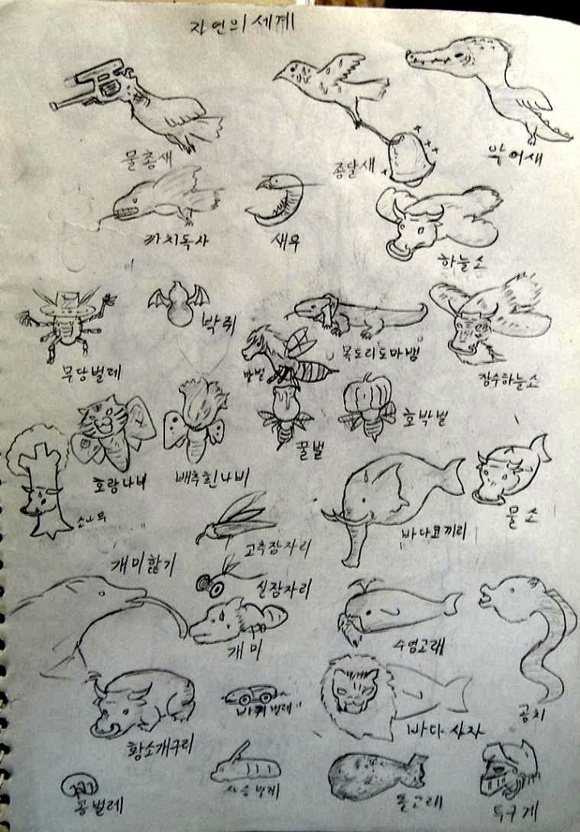 자연의 세계
물총새
종달새
악어새
까치독사
새우
하늘소
무당벌레
박쥐
목도리도마뱀
장수하늘소
말벌
꿀벌
호박벌
호랑나비
배추흰나비
소나무
고추잠자리
바다코끼리
물소
개미핥기
실잠자리
개미
수염고래
곰치
황소개구리
바퀴벌레
바다사자
공벌레
사슴벌레
돌고래
투구게